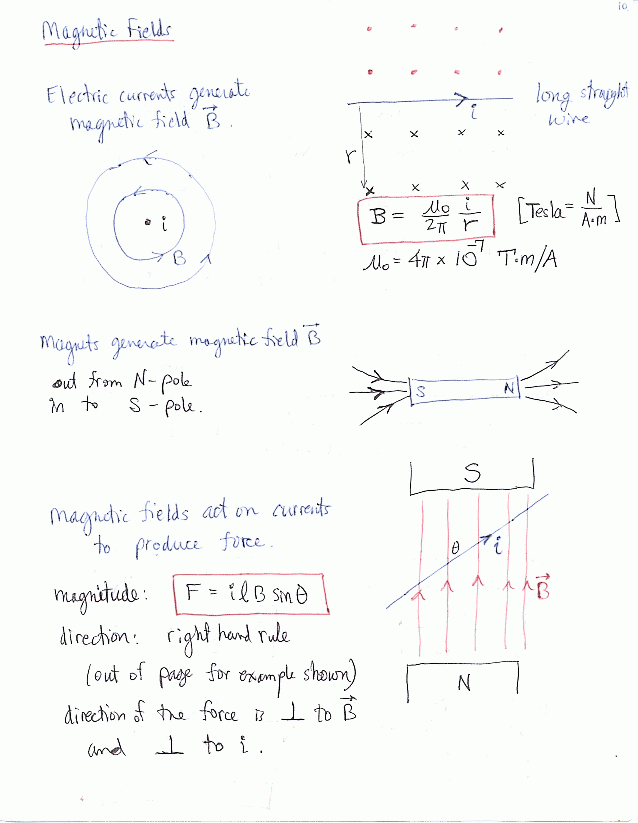 10
Magnetic Fields
Electric currents generate
magnetic field B⃗.
i
long straight
wire
r
i
B
B = μ₀/2π i/r
[Tesla = N/A·m]
μ₀ = 4π × 10⁻⁷ T·m/A
Magnets generate magnetic field B⃗
out from N-pole
in to S-pole.
S N
S
Magnetic fields act on currents
to produce force.
θ i
magnitude: F = i l B sin θ
B⃗
direction: right hand rule
(out of page for example shown)
N
direction of the force is ⊥ to B⃗
and ⊥ to i.